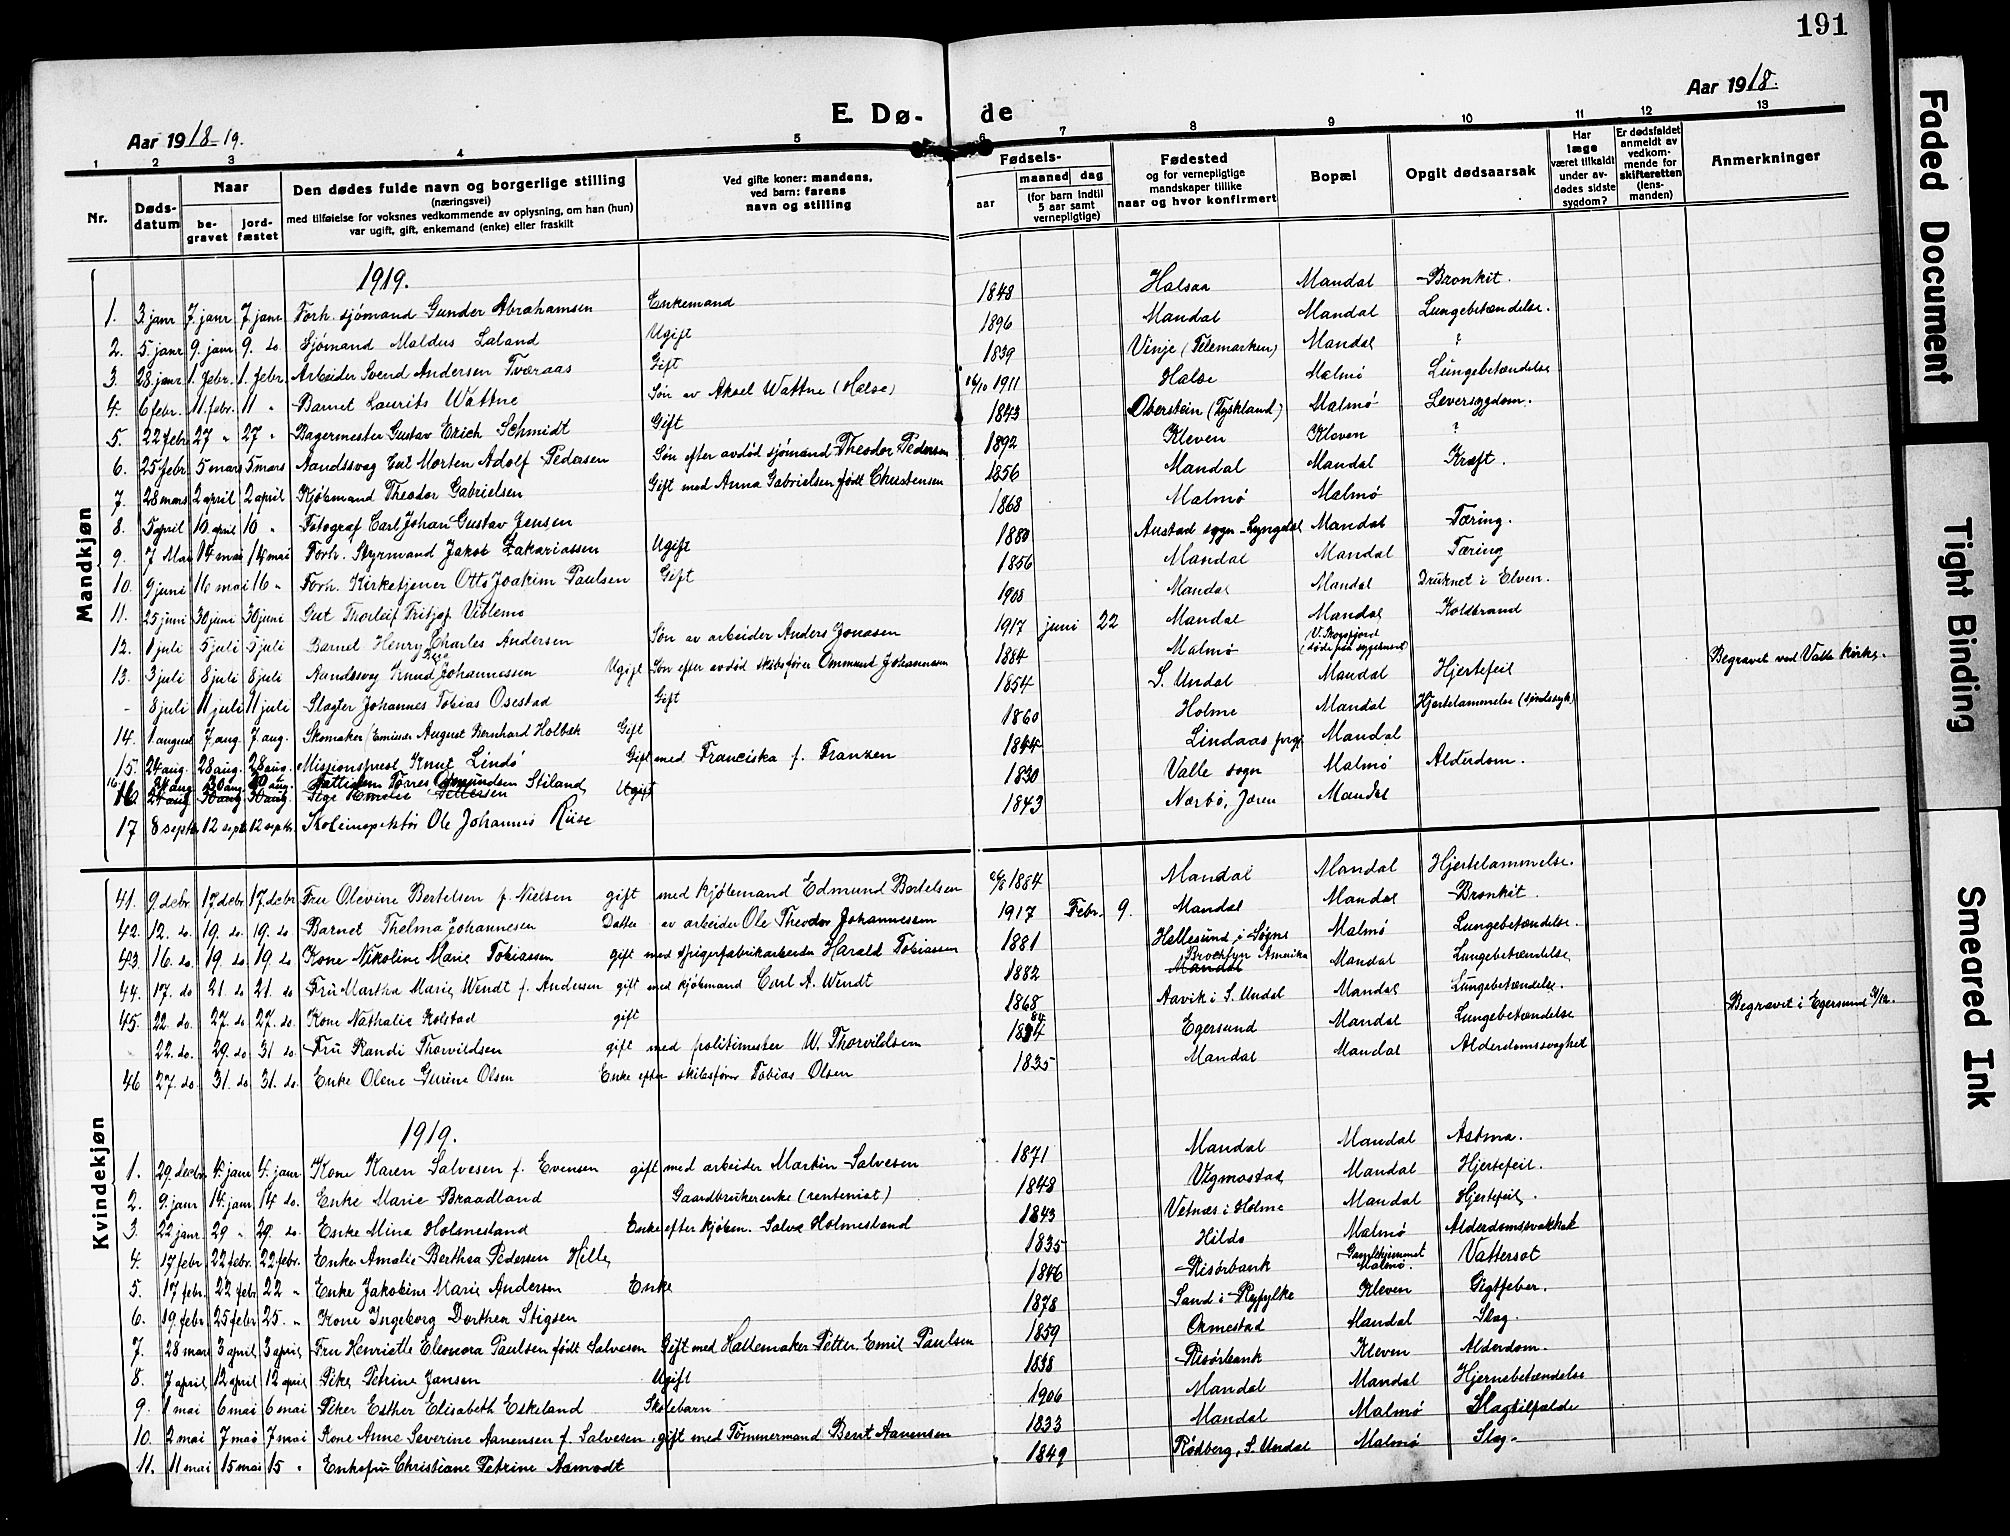 191
Aar 1918-19.
E. Dø-
de
Aar 1918.
1 2 3 4 5 6 7 8 9 10 11 12 13
Nr.
Dødsdatum
Naar
begravet
jordfæstet
Den dødes fulde navn og borgerlige stilling
(næringsvei)
med tilføielse for voksnes vedkommende av oplysning, om han (hun)
var ugift, gift, enkemand (enke) eller fraskilt
Ved gifte koner: mandens,
ved barn: farens
navn og stilling
Fødsels-
aar
maaned dag
(for barn indtil
5 aar samt
vernepligtige)
Fødested
og for vernepligtige
mandskaper tillike
naar og hvor konfirmert
Bopæl
Opgit dødsaarsak
Har
læge
været tilkaldt
under avdødes
sidste
sygdom?
Er dødsfaldet
anmeldt av
vedkommende
for
skifteretten
(lensmanden)
Anmerkninger
Mandkjøn
1919.
1. 3 janr 7. janr 7 janr Forh. sjømand Gunder Abrahamsen Enkemand 1848 Halsaa Mandal Bronkit.
2. 5. janr 9. janr 9. do. Sjømand Maldus Laland Ugift 1896 Mandal Mandal Lungebetændelse.
3. 28. janr 1. febr. 1. febr Arbeider Svend Andersen Tveraas Gift 1839 Vinje (Telemarken) Mandal ?
4. 6 febr. 11. febr. 11 " Barnet Laurits Wattne Søn av Aksel Wattne (Halse) 16/10 1911 Halse Malmø Lungebetændelse
5. 22 febr 27 " 27 " Bagermester Gustav Erich Schmidt Gift 1843 Oberstein (Tyskland) Malmø Leversygdom.
6. 25 febr. 5 mars 5 mars Aandssvag Carl Morten Adolf Pedersen Søn efter avdød sjømand Theodor Pedersen 1892 Kleven Kleven ?
7. 28 mars 2 april 2 april Kjøbmand Theodor Gabrielsen Gift med Anna Gabrielsen født Christensen 1856 Mandal Mandal Kræft.
8. 5 april 10 april 10 " Fotograf Carl Johan Gustav Jensen 1868 Malmø Malmø
9. 7 Mai 14 mai 14 mai Forh. Styrmand Jakob Zakariassen Ugift 1880 Austad sogn Lyngdal Mandal Tæring.
10. 9 juni 16 mai 16 " Forh. Kirketjener Otto Joakim Paulsen Gift 1856 Mandal Mandal Tæring
11. 25 juni 30 juni 30 juni Gut Thorleif Fritjof Viblemo 1908 Mandal Mandal Druknet i Elven.
12. 1 juli 5 juli 5 juli Barnet Henry Charles Andersen Søn av arbeider Anders Jonasen 1917 juni 22 Mandal Mandal Koldbrand
13. 3 juli 8 juli 8 juli Aandssvag Knud Johannessen Ugift Søn efter avdød skibsfører Ommund Johannessen 1884 Malmø
- 8 juli 11 juli 11 juli Slagter Johannes Tobias Osestad Gift 1854 S. Undal Mandal Hjertefeil Begravet ved Valle kirke.
14. 1 august 7 aug. 7 aug. Skomaker Emines August Bernhard Holbek Gift 1860 Holme Mandal Hjertelammelse
15. 24 aug. 28 aug. 28 aug. Missionsprest Knut Lindø Gift med Franciska f. Franzen 1844 Lindaas Mandal
16 24 aug 30 aug 30 aug. Fattiglem Torres Omundsen Stiland Ugift 1830 Valle sogn Malmø Alderdom.
17 8 septr 12 septr 12 septr. Skoleinspektør Ole Johannes Riise 1843 Nærbø, Jæren Mandal
Kvindekjøn
41. 9 decbr 17 decbr 17. decbr Fru Olevine Bertelsen f. Nielsen gift med kjøbmand Edmund Bertelsen 1884 Mandal Mandal Hjertelammelse.
42. 12. do. 19. do. 19. do. Barnet Thelma Johannesen Datter av arbeider Ole Theodor Johannessen 1917 Febr. 9. Mandal Mandal Bronkit.
43. 16. do 19. do 19 do Kone Nikoline Marie Tobiassen gift med spigerfabrikarbeider Harald Tobiassen 1881 Hallesund i Søgne Malmø Lungebetændelse.
44. 17. do 21. do 21. do Fru Martha Marie Wendt f. Andersen gift med kjøbmand Carl A. Wendt 1882 Brooklyn Amerika Mandal Lungebetændelse
45. 22. do. 27. do 27. do. Kone Nathalie Kolstad gift 1868 Aavik i S. Undal Mandal Lungebetændelse.
22. do. 29. do 31 do. Fru Randi Thorvildsen gift med politimester W. Thorvildsen 1884 Egersund Mandal Lungebetændelse Begravet i Egersund
46 27. do. 31. do 31. do. Enke Olene Gurine Olsen Enke efter skibsfører Tobias Olsen 1835 Mandal Mandal Alderdomssvaghed
1919.
1. 29. decbr 4. janr 4. janr Kone Karen Salvesen f. Evensen gift med arbeider Martin Salvesen 1871 Mandal Mandal Astma.
2. 9. janr 14. janr 14 do. Enke Marie Braadland Gaardbrukerenke (rentenist) 1848 Vigmostad Mandal Hjertefeil.
3. 22 janr 29 " 29. do Enke Mina Holmesland Enke efter kjøbm. Salve Holmesland 1843 Vetnæs i Holme Mandal Hjertefeil.
4. 17 febr 22 febr. 22 febr. Enke Amalie Berthea Pedersen Hille 1835 Hilds Malmø Alderdomssvakhet
5. 17 febr. 22 febr 22 " Enke Jakobine Marie Andersen Enke 1846 Risørbank Gamlehjemmet Malmø. Vattersot
6. 19 febr 25 febr 25. " Kone Ingeborg Dorthea Stigsen 1878 Sand i Ryfylke Kleven Gigtfeber.
7. 28 mars 3 april 3 april Fru Henriette Eleonora Paulsen født Salvesen Gift med Hattemaker Petter Emil Paulsen 1859 Ormestad Mandal Slag.
8. 7 april 12 april 12 april Pike Petrine Jansen Ugift 1838 Risørbank Kleven Alderdom.
9. 1 mai 6 mai 6 mai Piken Esther Elisabeth Eskeland Skolebarn 1906 Mandal Mandal Hjernebetændelse
10. 2 mai 7 mai 7 mai Kone Anne Severine Aanensen f. Salvesen, gift med Tømmermand Berit Aanensen 1833 Mandal Malmø Slagtilfælde
11. 11 mai 15 mai 15 " Enkefru Christiane Petrine Aamodt 1849 Rødberg, S. Undal Malmø Slag.
Faded Document
Tight Binding
Smeared Ink